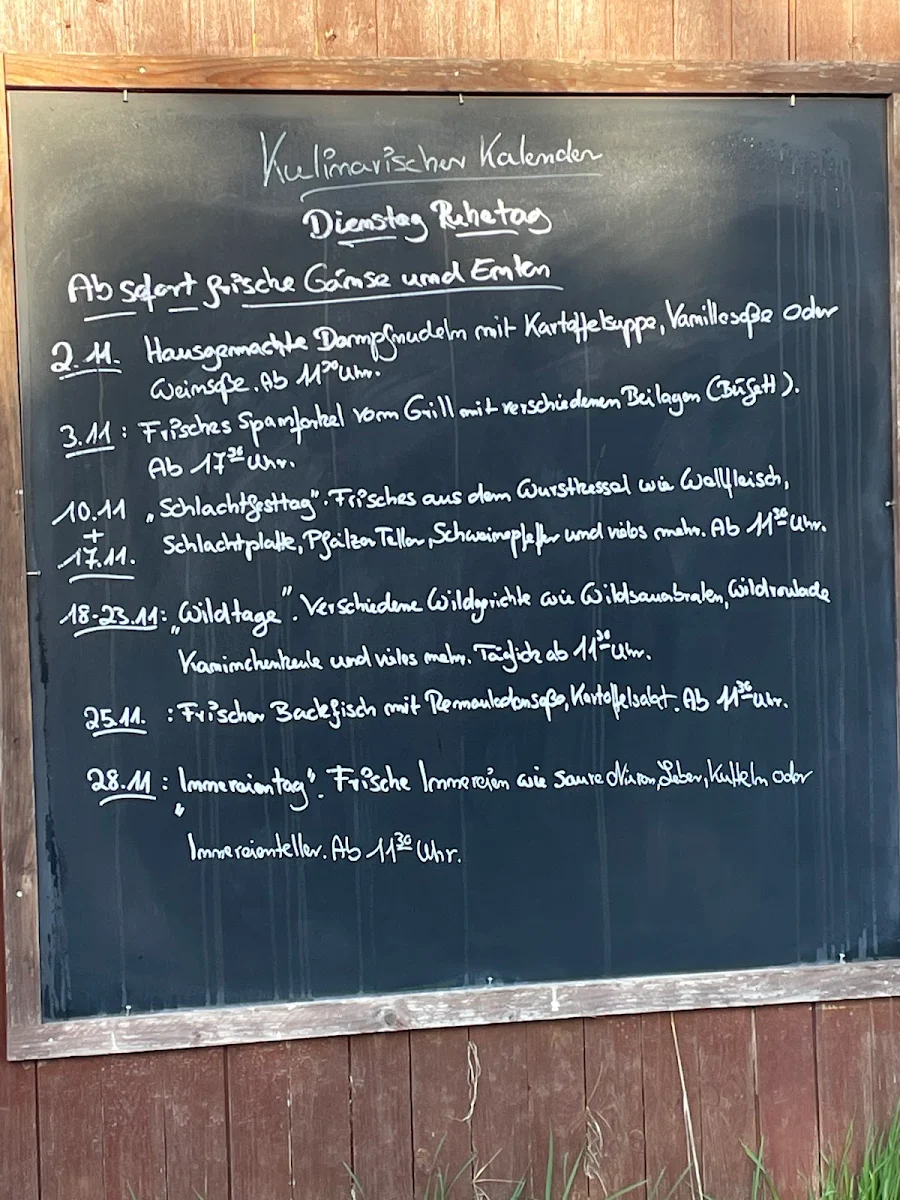 Kulinarischer Kalender
Dienstag Ruhetag
Ab sofort frische Gänse und Enten
2.11. Hausgemachte Dampfnudeln mit Kartoffelsuppe, Vanillesoße oder
Weinsoße. Ab 11³⁰ Uhr.
3.11: Frisches Spanferkel vom Grill mit verschiedenen Beilagen (Büfett).
Ab 17³⁰ Uhr.
10.11 „Schlachtfesttag". Frisches aus dem Wurstkessel wie Wellfleisch,
+
17.11. Schlachtplatte, Pfälzer Teller, Schweinepfeffer und vieles mehr. Ab 11³⁰ Uhr.
18-23.11: „Wildtage". Verschiedene Wildgerichte wie Wildsauerbraten, Wildroulade
Kaninchenkeule und vieles mehr. Täglich ab 11³⁰ Uhr.
25.11. : Frischer Backfisch mit Remouladensoße, Kartoffelsalat. Ab 11³⁰ Uhr.
28.11 : „Innereientag". Frische Innereien wie saure Nieren, Leber, Kutteln oder
Innereienteller. Ab 11³⁰ Uhr.